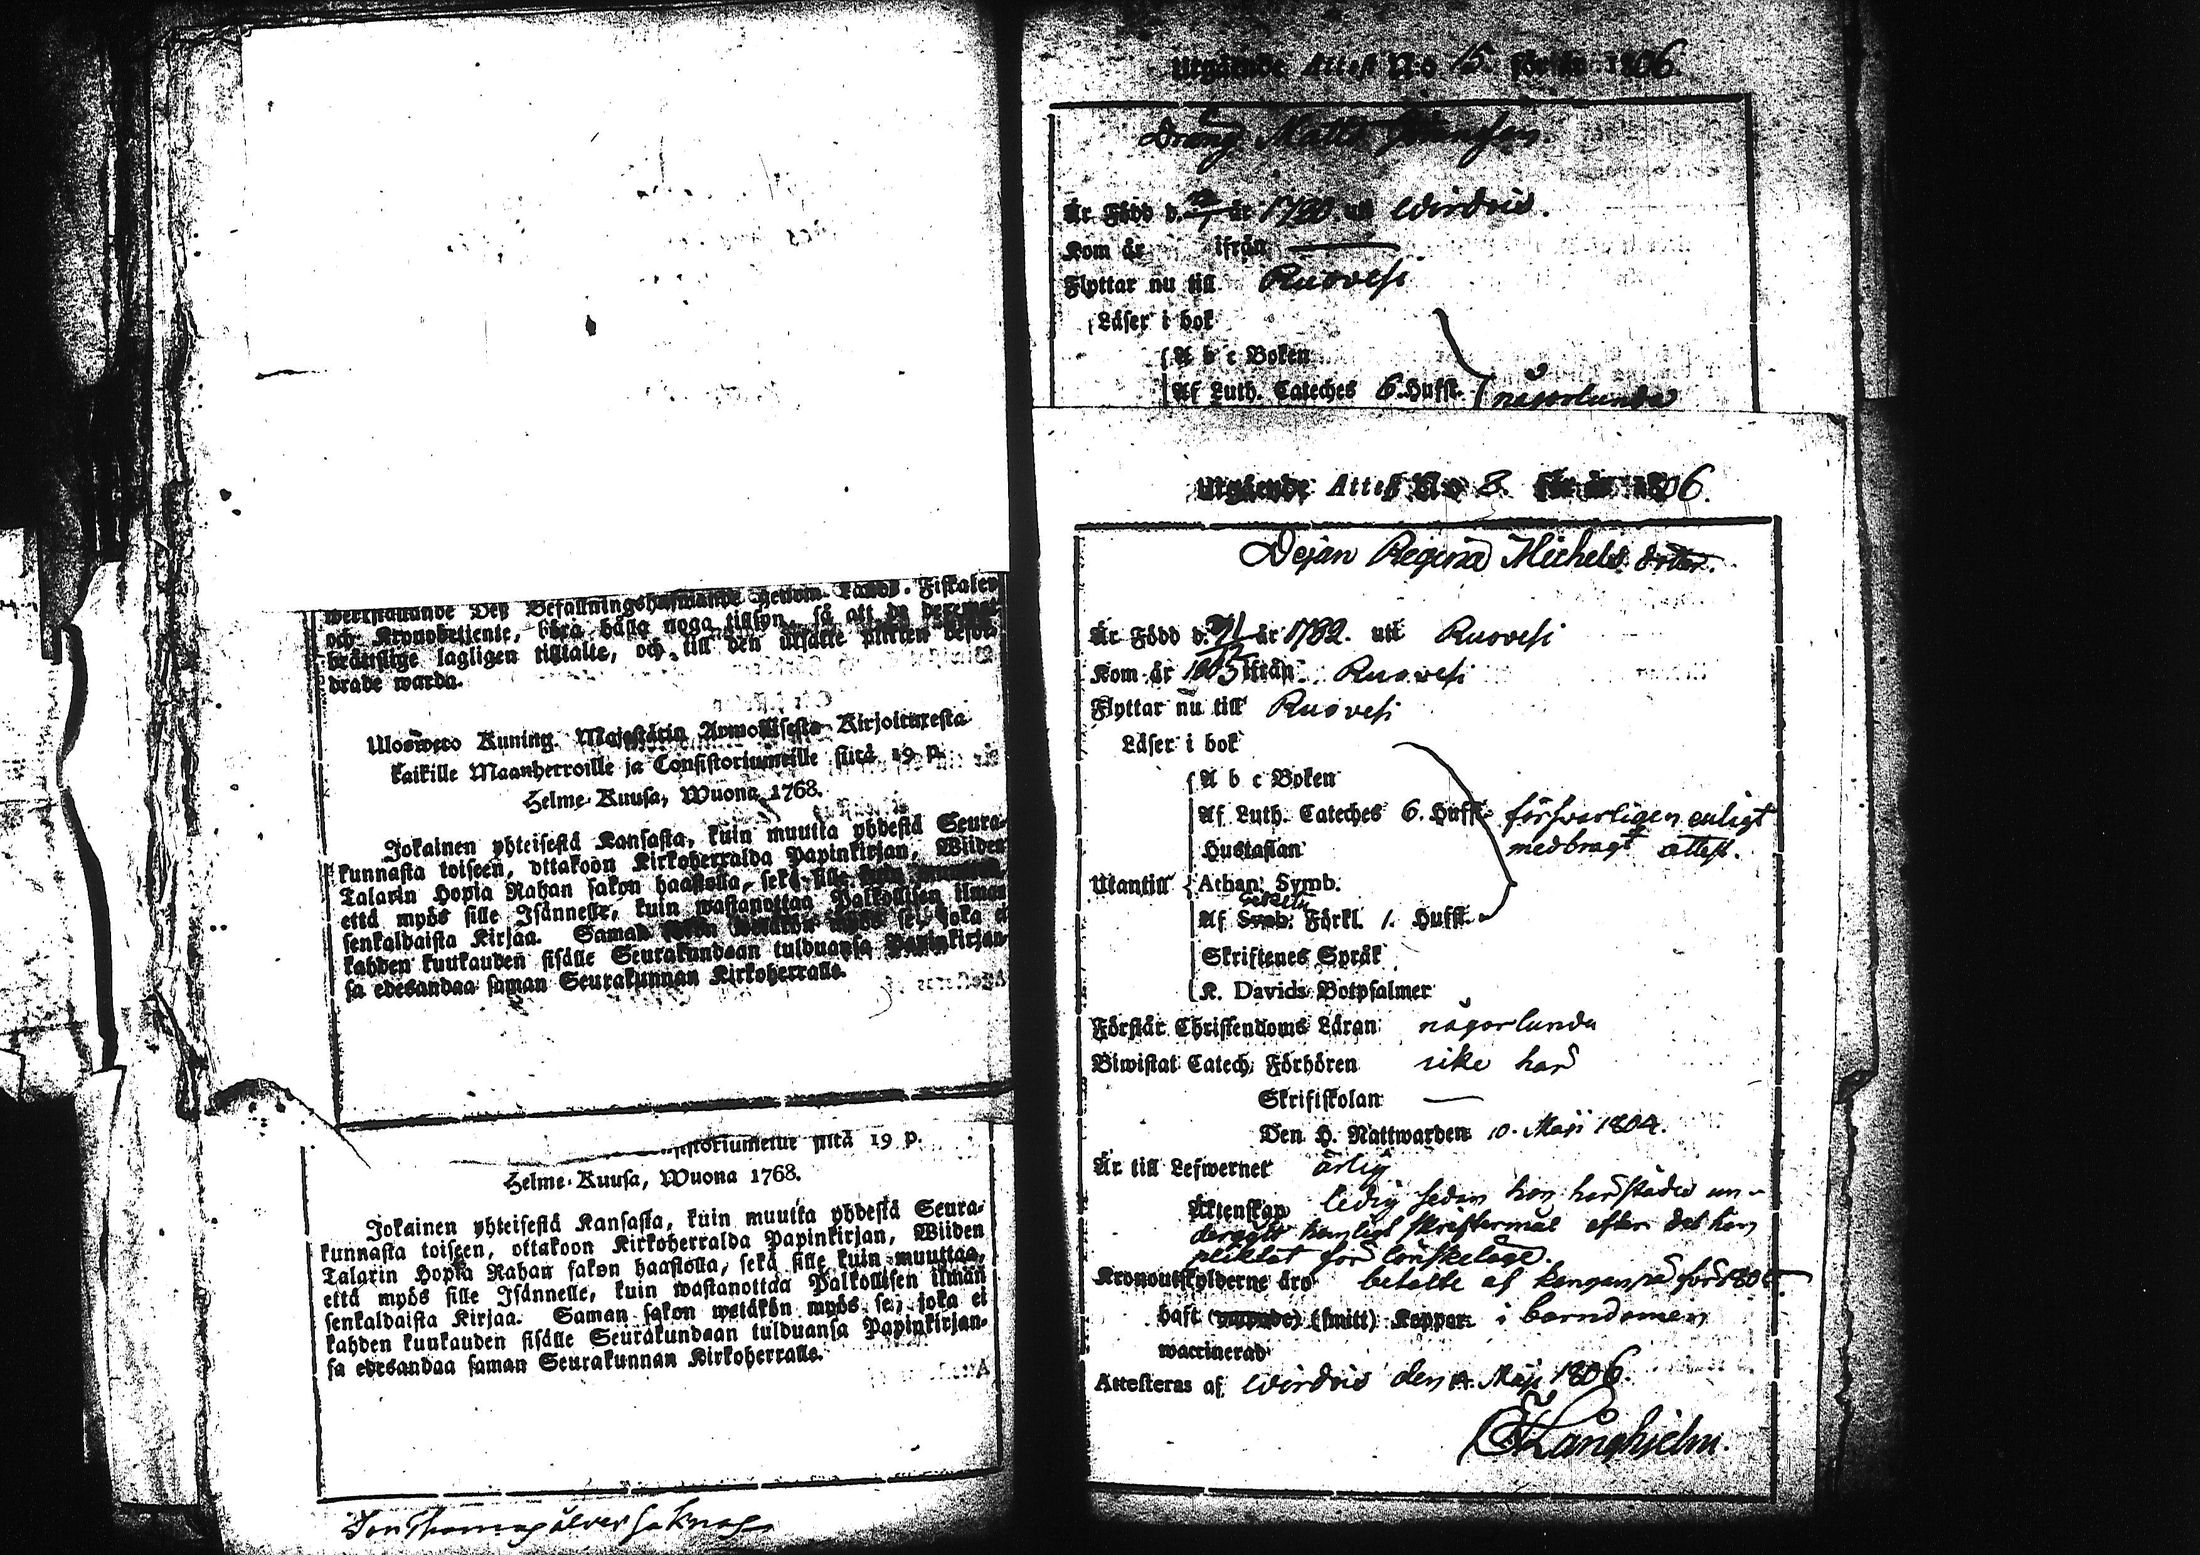 werkställande Deß Befallningshafwande genom Lands-Fiskaler
och Kronobetjente, bära håsla noga tillsyn, så att de
bråttslige lagligen tilltalte, och till den utsatte plikten befor-
drade warda.
Ulosweto Kuning. Majestätin Armollisesta Kirjoituxesta
kaikille Maanherroille ja Consistoriumeille siitä 19 p.
Helme-Kuusa, Wuona 1768.
Jokainen yhteisestä Kansasta, kuin muutta yhdestä Seura-
kunnasta toiseen, ottakoon Kirkoherralda Papinkirjan, Wiiden
Talarin Hopia Rahan sakon haastolla, sekä sille kuin muuttaa,
että myös sille Isännelle, kuin wastanottaa Palkollisen ilman
senkaldaista Kirjaa. Saman sakon wetäkön myös se, joka ei
kahden kuukauden sisälle Seurakundaan tulduansa Papinkirjan-
sa edesandaa saman Seurakunnan Kirkoherralle.
storiumeille siitä 19 p.
Helme-Kuusa, Wuona 1768.
Jokainen yhteisestä Kansasta, kuin muutta yhdestä Seura-
kunnasta toiseen, ottakoon Kirkoherralda Papinkirjan, Wiiden
Talarin Hopia Rahan sakon haastolla, sekä sille kuin muuttaa,
että myös sille Isännelle, kuin wastanottaa Palkollisen ilman
senkaldaista Kirjaa. Saman sakon wetäkön myös se, joka ei
kahden kuukauden sisälle Seurakundaan tulduansa Papinkirjan-
sa edesandaa saman Seurakunnan Kirkoherralle.
Utgående Attest N:o 15. för år 1806.
Dräng Matts
Är Född d. år 1780 uti Wirdois.
Kom år ifrån
Flyttar nu till Ruovesi
Läser i bok
A b c Boken
Af Luth. Cateches 6. Hufst. någorlunda
Utgående Attest N:o 8. för år 1806.
Pejan Regina Michels dotter.
Är Född d. år 1782. uti Ruovesi
Kom år 1805 ifrån Ruovesi
Flyttar nu till Ruovesi
Läser i bok
A b c Boken
Af Luth. Cateches 6. Hufst. försvarligen enligt
Hustaflan medbragt attest.
Utantill Athan. Symb.
Af Sweb. Förkl. 1. Hufst.
Skriftenes Språk
K. Davids Botpsalmer
Förstår Christendoms Läran någorlunda
Biwistat Catech. Förhören icke här
Skriftskolan
Den H. Nattwarden 10. Maji 1804.
Är till Lefwernet ärlig
Äktenskap ledig sedan hon härstädes un-
dergått hemligt skriftermål efter det hon
pliktat för lönskeläge.
Kronoutskylderne äro betalte af för 180
haft (smitt) Koppor i barndomen
waccinerad
Attesteras af Wirdois den Maji 1806.
Långhjelm.